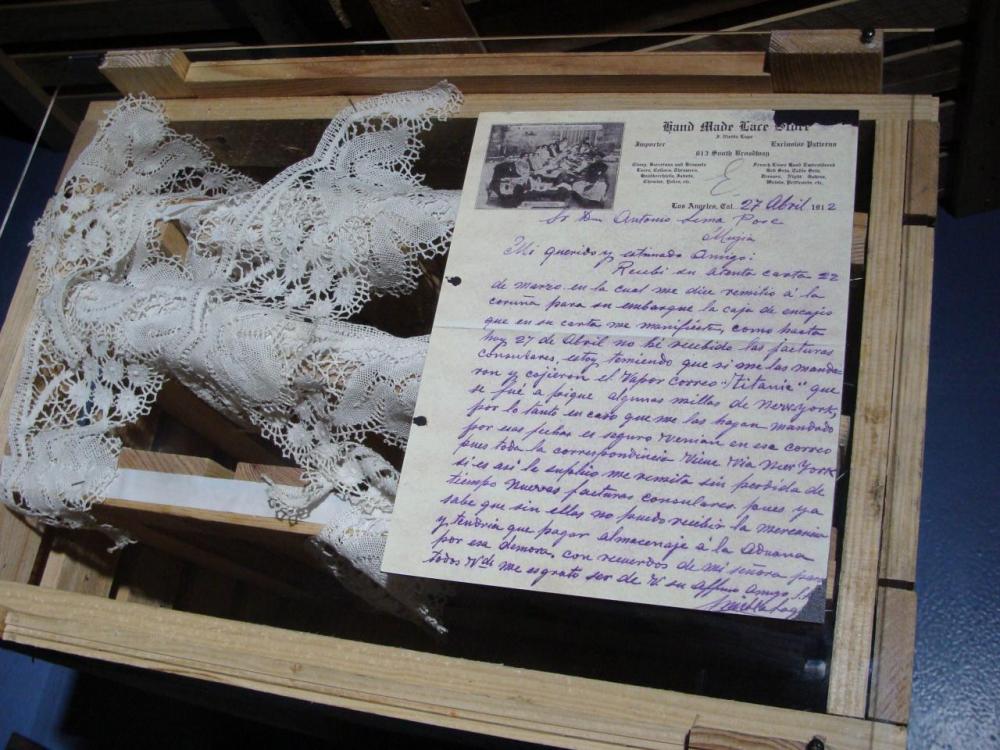 Hand Made Lace Store
Importer
Exclusive Patterns
813 South Broadway
Cluny, Duchess and Brussels
Laces, Collars, Chemises,
Handkerchiefs, Jabots,
French Linen Hand Embroidered
Bed Sets, Table Sets,
Dresses, Night Gowns,
Waists, Petticoats, etc.
Los Angeles, Cal. 27 Abril 1912
Sr Dn Antonio Lema Pose
Mugia
Mi querido y estimado Amigo:
Recibi su atenta carta 22
de marzo en la cual me dice remitio á la
coruña para su embarque la caja de encajes
que en su carta me manifiesta, como hasta
hoy 27 de Abril no hé recibido las facturas
consulares, estoy temiendo que si me las manda-
ron y cojieron el Vapor Correo "Titanic" que
se fué a pique algunas millas de New York,
por lo tanto en caso que me las hayan mandado
por esas fechas es seguro venian en ese correo
pues toda la correspondencia viene via New York
si es asi le suplico me remita sin perdida de
tiempo nuevas facturas consulares pues ya
sabe que sin ellas no puedo recibir la mercancia
y tendria que pagar almacenaje á la Aduana
por esa demora, con recuerdos de mi señora para
todos Vds me es grato ser de V su affmo Amigo